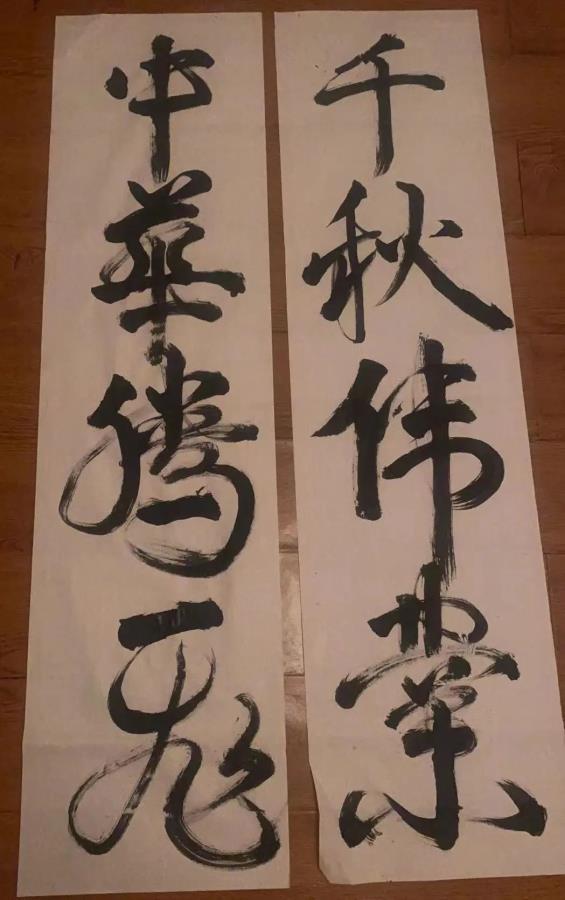 千秋伟業
中華騰飛